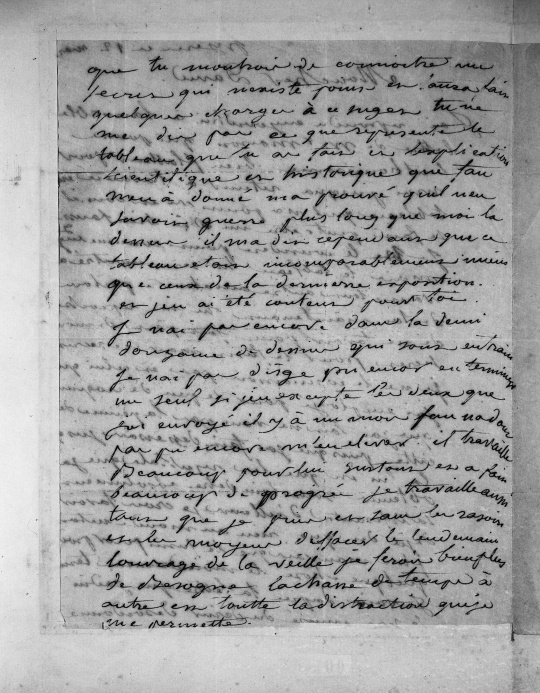 que tu montroir de connoitre une
lecres qui nexiste point et
quelques charger à ce sujet tu ne
me dis pas ce que represente le
tableau que tu as fait et lexplication
scientifique et historique que
men à donné ma prouvé quil nen
savoir guere plus long que moi la
dessus il ma dis cependant que ce
tableau etois incomparablement mieux
que ceux de la derniere exposition.
et jen ai été contens pour toi.
Je nai pas encore dans la demi
douzaine de dessins qui sons en train
je nai pas disge pu encor en terminer
un seul si jen excepte les deux que
jai envoyé il y à un mois
pas pu encore m'enlever il travaille
Beaucoup pour lui surtout et a fais
beaucoup de progrés je travaille aussi
tans que je puis et sans les
est le moyen deffacer le lendemain
louvrage de la veille je ferois bien plus
de Besogne la chasse de temps à
autre est toutte la distraction que je
me permette.